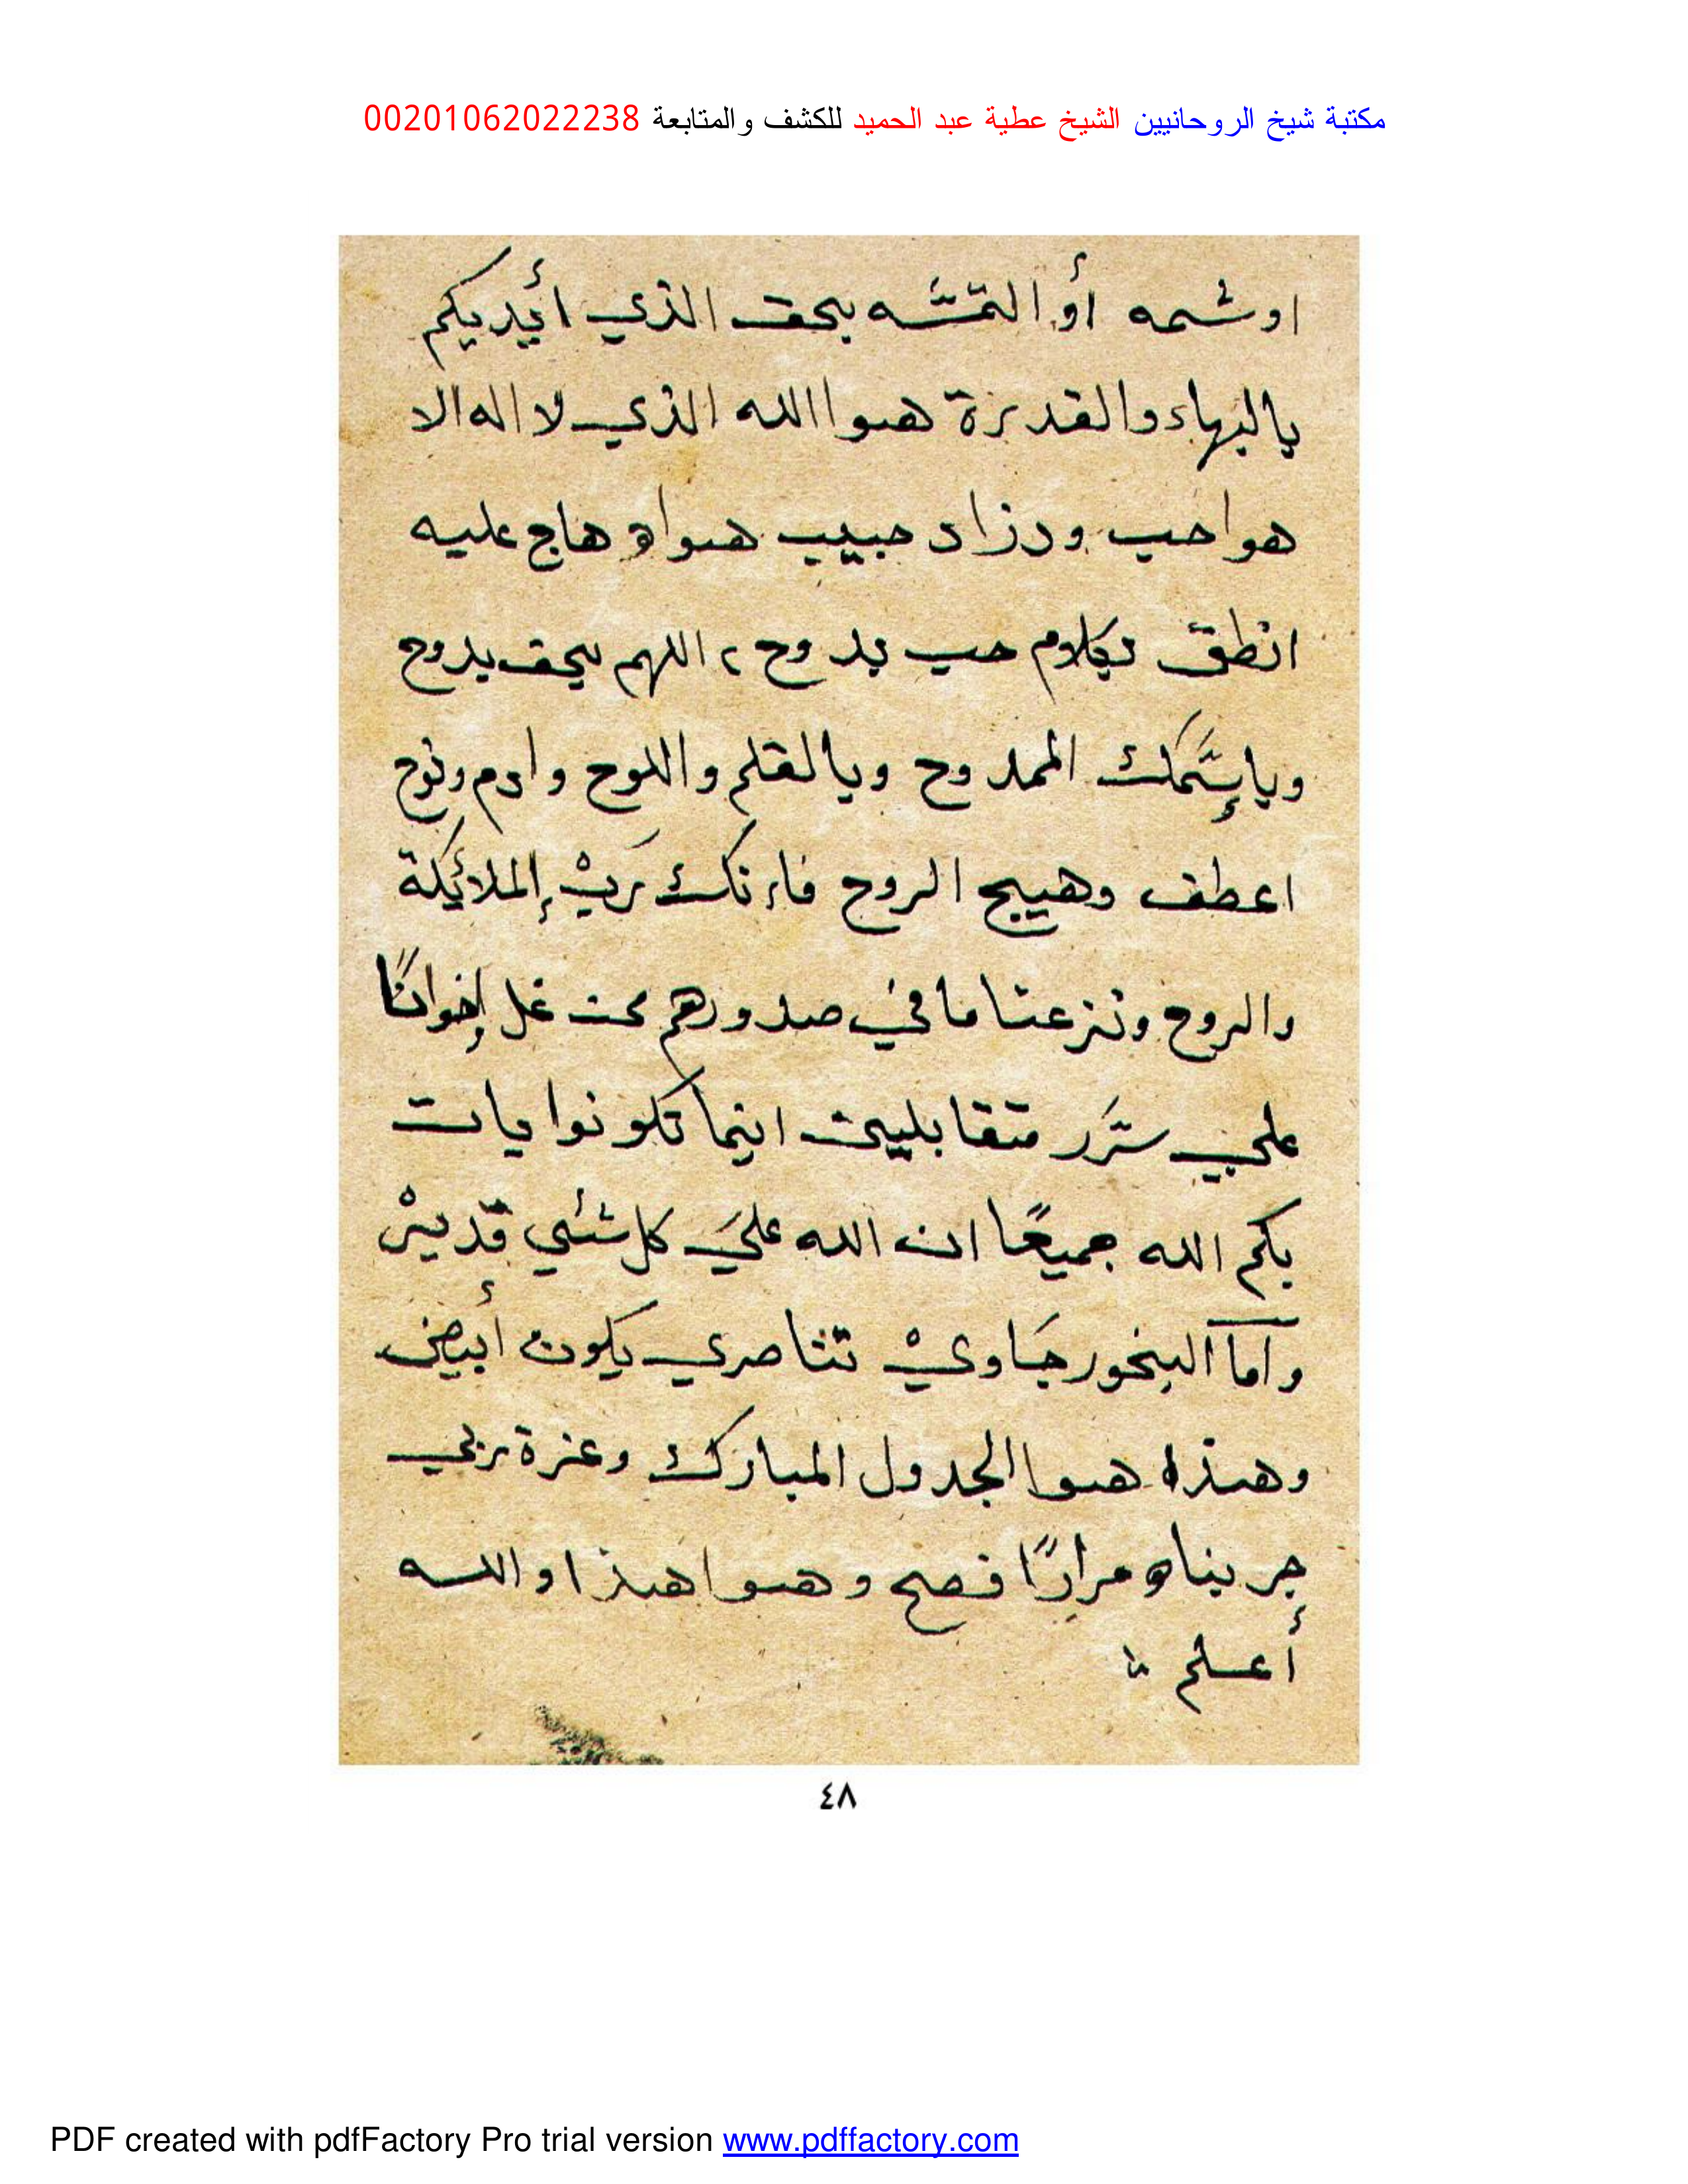 مكتبة شيخ الروحانيين الشيخ عطية عبد الحميد للكشف والمتابعة 00201062022238
اوشمه أو التمسه بحق الذي أيديكم
بالبهاء والقدرة هوا الله الذي لا اله الا
هوا حب ودزاد حبيب هواه هاج عليه
انطق بكلام حب بدوح ٢ اللهم بحق بدوح
وبإسمك الممدوح وبالقلم واللوح وادم ونوح
اعطف وهييج الروح فإنك رب الملائكة
والروح ونزعنا ما في صدورهم من غل إخوانًا
على سرر متقابلين اينما تكونوا يات
بكم الله جميعًا ان الله على كل شئي قدير
وأما البخور جاوي تناصري يكون أبيض
وهذا هوا الجدول المبارك وعزة ربي
جربناه مرارًا فصح وهوا هذا والله
أعلم
٤٨
PDF created with pdfFactory Pro trial version www.pdffactory.com